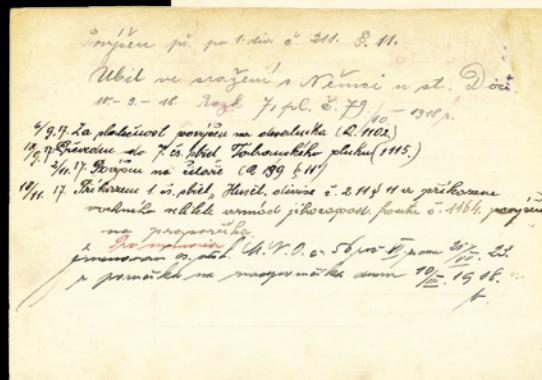 Povýšen př. po 1. div. č. 211. §. 11.
Ubit ve sražení s Němci u st. Dóči.
18.-3.-18. Rozk 7. pl. č. 79/10 - 1918 r.
6/9.17. Za statečnost povýšen na desátníka (R. 1102.)
18/9.17. Převeden do 7. čs. střel. Tatranského pluku (1115.)
3/11.17. Povýšen na četaře (R 199 § 11)
18/11. 17. Přikázem 1 čs. střel. Husit. divise č. 211 § 11 a přikazem
vrchního velitele armád jihozápad. frontu č. 1164. povýšen
na praporčíka.
Pro memoria
jmenován M. N. O. č. 56 VI 23.
z poručíka na nadporučíka dnem 10/III. 1918.